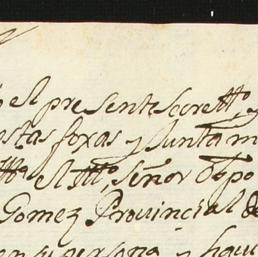 el presente secrett.o y
estas foxas y Junta m
el Ill.mo Señor Obpo
Gomez Provincial de
en su persona y haui